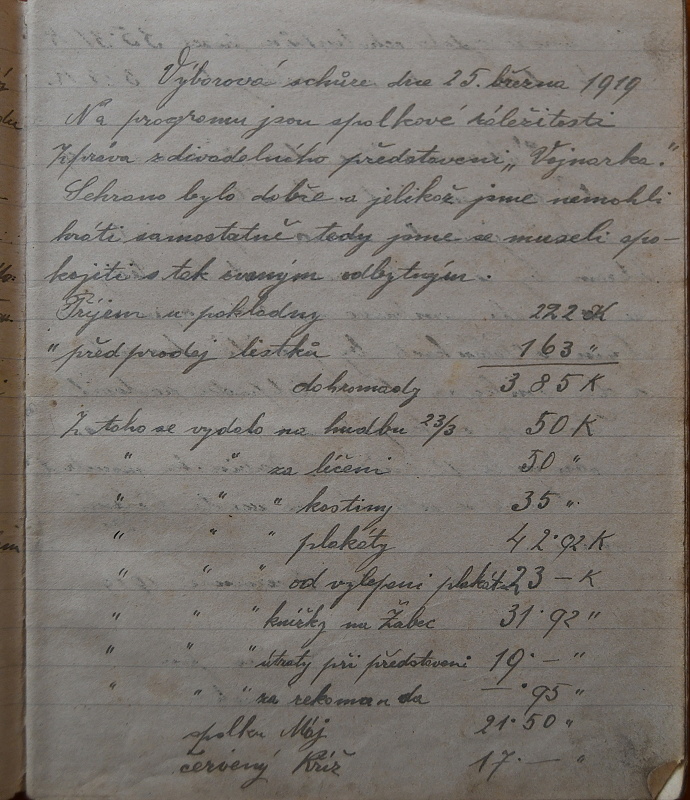 Výborová schůze dne 25. března 1919
Na programu jsou spolkové záležitosti
Zpráva z divadelního představení „Vojnarka."
Sehrano bylo dobře a jelikož jsme nemohli
hráti samostatně tedy jsme se museli spo-
kojiti s tak zvaným odbytným.
Příjem u pokladny 222 K
" předprodej lístků 163 "
dohromady 385 K
Z toho se vydalo na hudbu 23/3 50 K
" " za líčení 50 "
" " " kostimy 35 "
" " " plakáty 42·92 K
" " " od vylepení plakátů 23 – K
" " " knížky na Žabec 31·92 "
" " " útraty při představení 19·– "
" " " za rekomanda –·95 "
spolku Máj 21·50 "
červený Kříž 17·— "